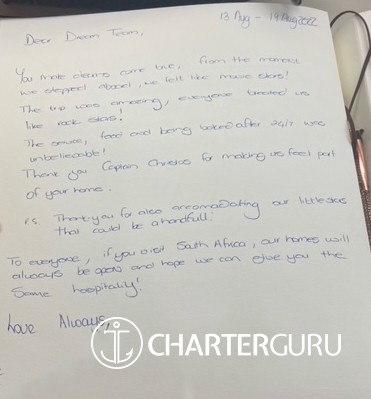 13 Aug - 19 Aug 2022
Dear Dream Team,
You made dreams come true, from the moment
we stepped aboard, we felt like movie stars!
The trip was amazing, everyone treated us
like rock stars!
The service, food and being looked after 24/7 was
unbelievable!
Thank you Captain Christos for making us feel part
of your home.
P.S. Thank-you for also accomadating our little ones
that could be a handfull!
To everyone, if you visit South Africa, our homes will
always be open and hope we can give you the
same hospitality!
Love Always,
CHARTERGURU